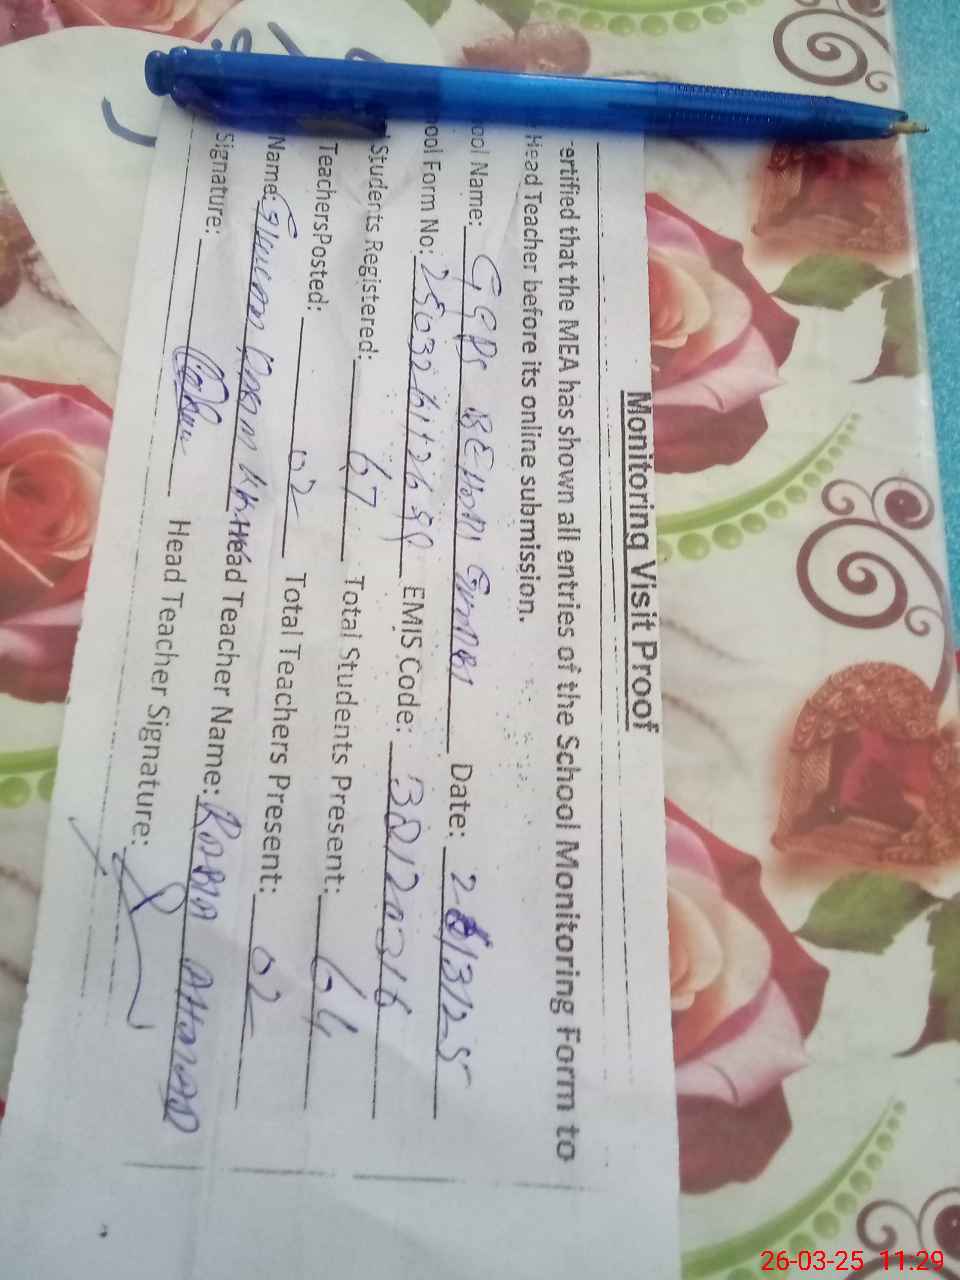 Monitoring Visit Proof
ertified that the MEA has shown all entries of the School Monitoring Form to
Head Teacher before its online submission.
ool Name: GGPS Date: 26/3/25
ool Form No: EMIS Code:
Students Registered: 67 Total Students Present: 64
TeachersPosted: 02 Total Teachers Present: 02
Name: Head Teacher Name: RABIA
Signature: Head Teacher Signature:
26-03-25 11:29